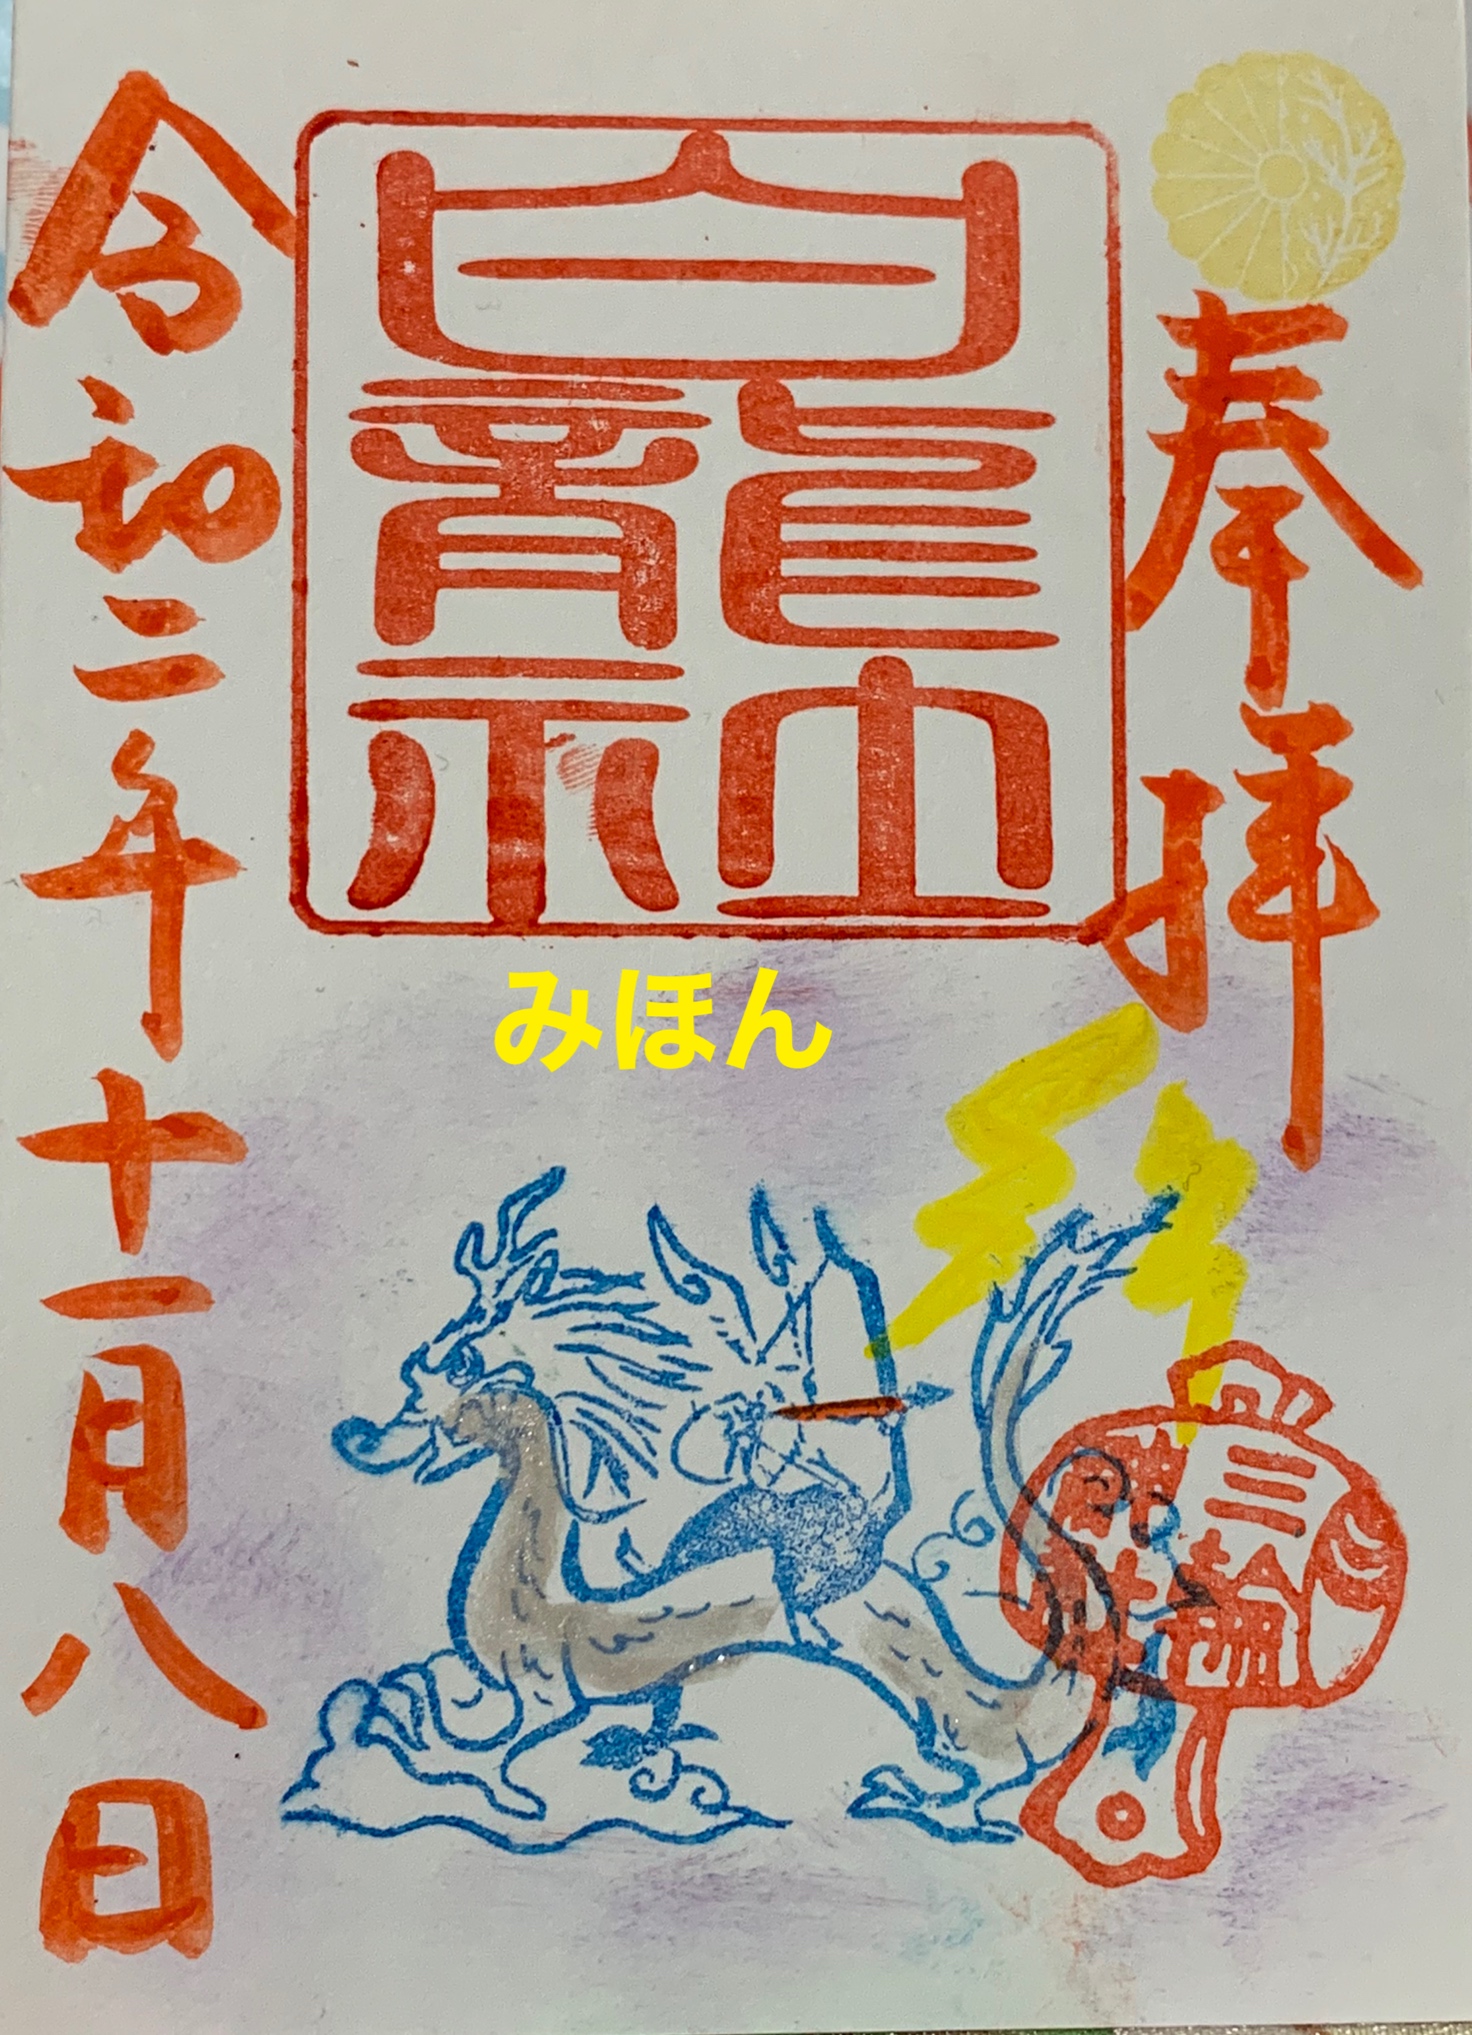 奉拝
白龍社
令和二年十一月八日
みほん
三輪
神社